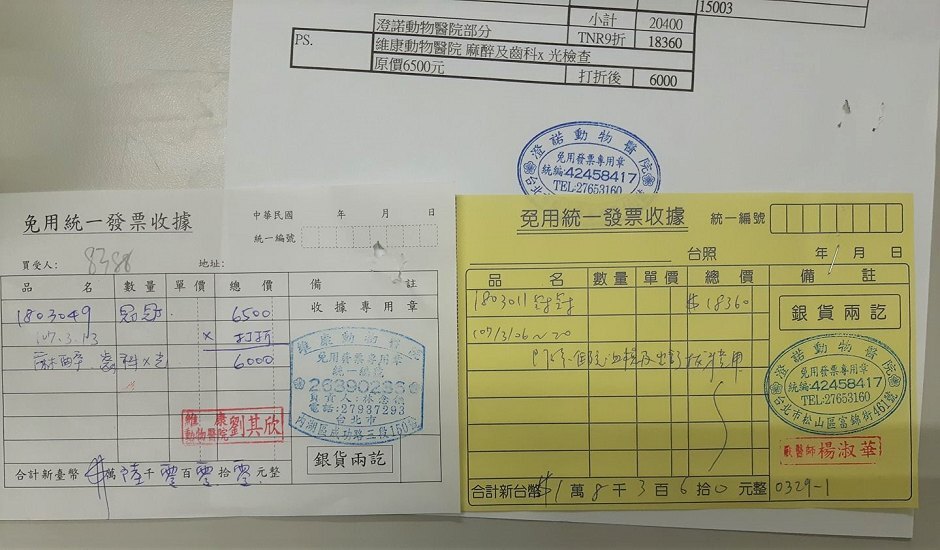 15003
小計 20400
澄諾動物醫院部分 TNR9折 18360
PS. 維康動物醫院 麻醉及齒科x 光檢查
原價6500元 打折後 6000
澄諾動物醫院
免用發票專用章
統編42458417
TEL:27653160
免用統一發票收據
中華民國 年 月 日
統一編號
買受人: 8388 地址:
品名 數量 單價 總價 備註
收據專用章
1803049 6500
107.3.13 × 打折
麻醉.齒科x光 6000
維康動物醫院
免用發票專用章
統一編號
26390233
負責人:林
電話:27937293
台北市
內湖區成功路三段150號
維康
動物醫院 劉其欣
銀貨兩訖
合計新臺幣 $ 萬 陸 千 零 百 零 拾 零 元整
免用統一發票收據 統一編號
台照 年 月 日
品名 數量 單價 總價 備註
1803011 $18360
107/3/06~20
銀貨兩訖
澄諾動物醫院
免用發票專用章
統編42458417
TEL:27653160
台北市松山區富錦街461號
獸醫師 楊淑華
合計新台幣 $1 萬 8 千 3 百 6 拾 0 元整 0329-1